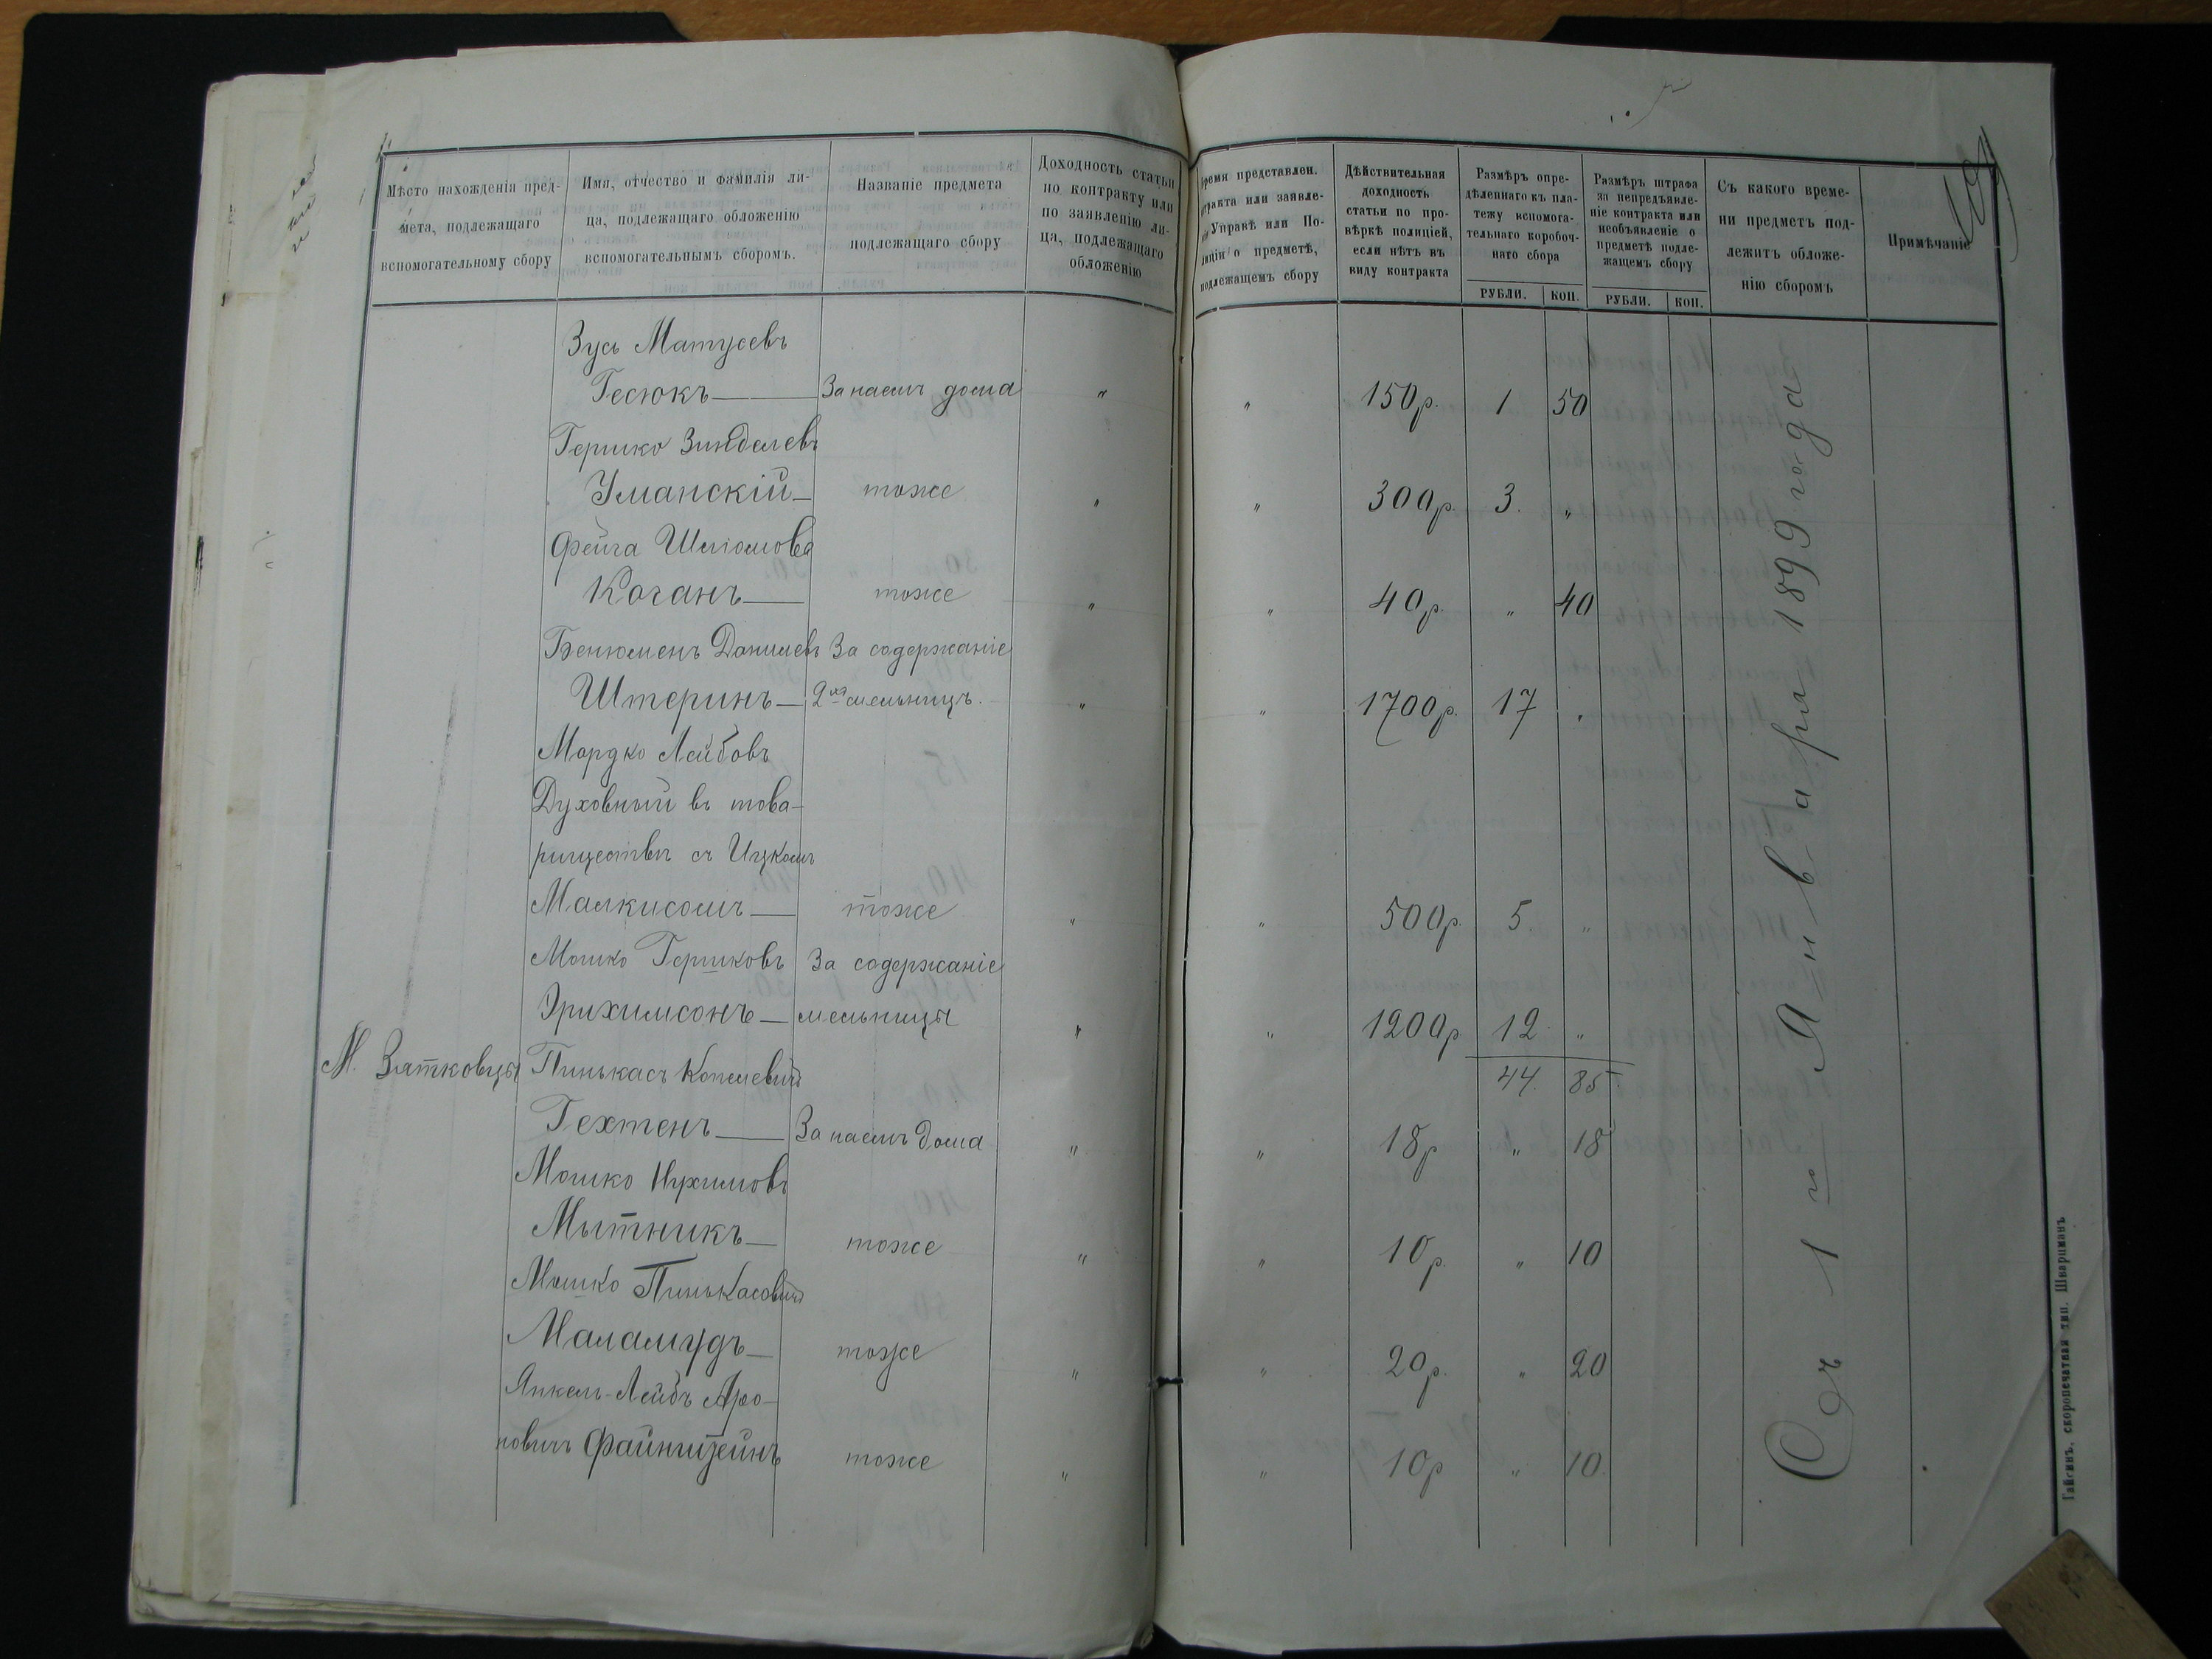 Мѣсто нахожденія пред-
мета, подлежащаго
вспомогательному сбору
Имя, отчество и фамилія ли-
ца, подлежащаго обложенію
вспомогательнымъ сборомъ.
Названіе предмета
подлежащаго сбору
Доходность статьи
по контракту или
по заявленію ли-
ца, подлежащаго
обложенію
Время представлен.
контракта или заявле-
Управѣ или По-
о предметѣ,
подлежащемъ сбору
Дѣйствительная
доходность
статьи по про-
вѣркѣ полиціей,
если нѣтъ въ
виду контракта
Размѣръ опре-
дѣленнаго къ пла-
тежу вспомога-
тельнаго коробоч-
наго сбора
РУБЛИ. КОП.
Размѣръ штрафа
за непредъявле-
ніе контракта или
необъявленіе о
предметѣ подле-
жащемъ сбору
РУБЛИ. КОП.
Съ какого време-
ни предметъ под-
лежитъ обложе-
нію сборомъ
Примѣчаніе
Зусь Матусевъ
Гесюкъ — За наемъ дома " " 150р. 1 50
Гершко Зинделевъ
Уманскій — тоже " " 300р. 3. "
Фейга Шліомова
Коганъ — тоже " " 40р. " 40
Бенюменъ Данилевъ За содержаніе
Штеринъ — 2хъ мельницъ. " " 1700р. 17 "
Мордко Лейбовъ
Духовный въ това-
риществѣ съ Ицкомъ
Малкисомъ — тоже " " 500р. 5. "
Мошко Гершковъ За содержаніе
Эрихимсонъ — мельницы " " 1200р 12 "
44. 85.
М. Зятковцы Пинькасъ Копелевичъ
Гехтенъ — За наемъ дома " " 18р " 18
Мошко Нухимовъ
Мытникъ — тоже " " 10р. " 10
Мошко Пинькасовичъ
Маламудъ — тоже " " 20р. " 20
Янкель-Лейбъ Аро-
новичъ Файнштейнъ тоже " " 10р " 10.
Съ 1го Января 1899 года
Гайсинъ, скоропечатная тип. Шварцманъ